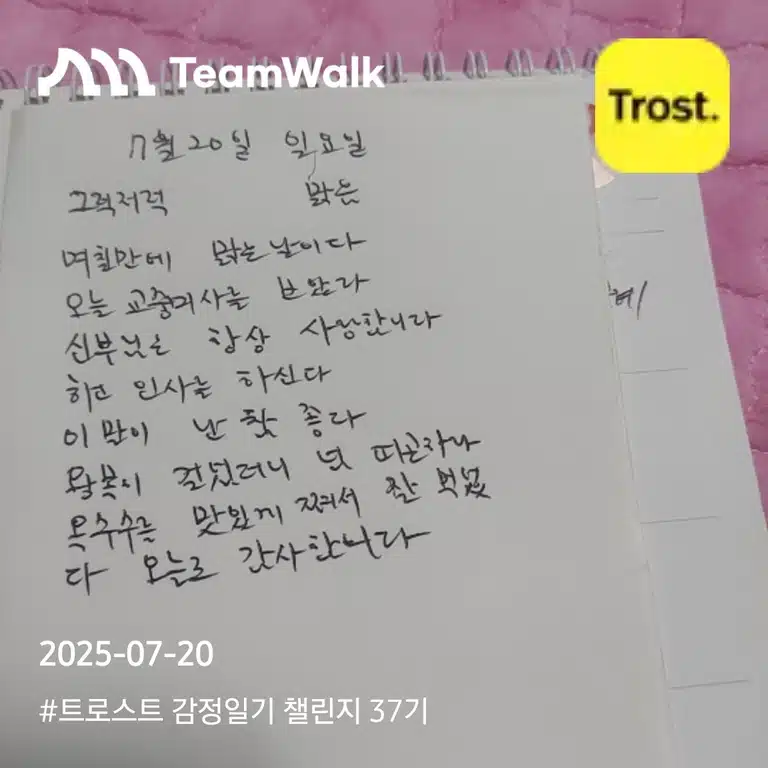 TeamWalk
Trost.
7월 20일 일요일
그럭저럭 맑음
며칠만에 맑는날이다
오늘 교중미사를 보았다
신부님은 항상 사랑합니다
하고 인사를 하신다
이 말이 난 참 좋다
왕복이 걸었더니 넘 따끈하나
옥수수를 맛있게 쪄서 잘 먹었
다 오늘도 감사합니다
2025-07-20
#트로스트 감정일기 챌린지 37기